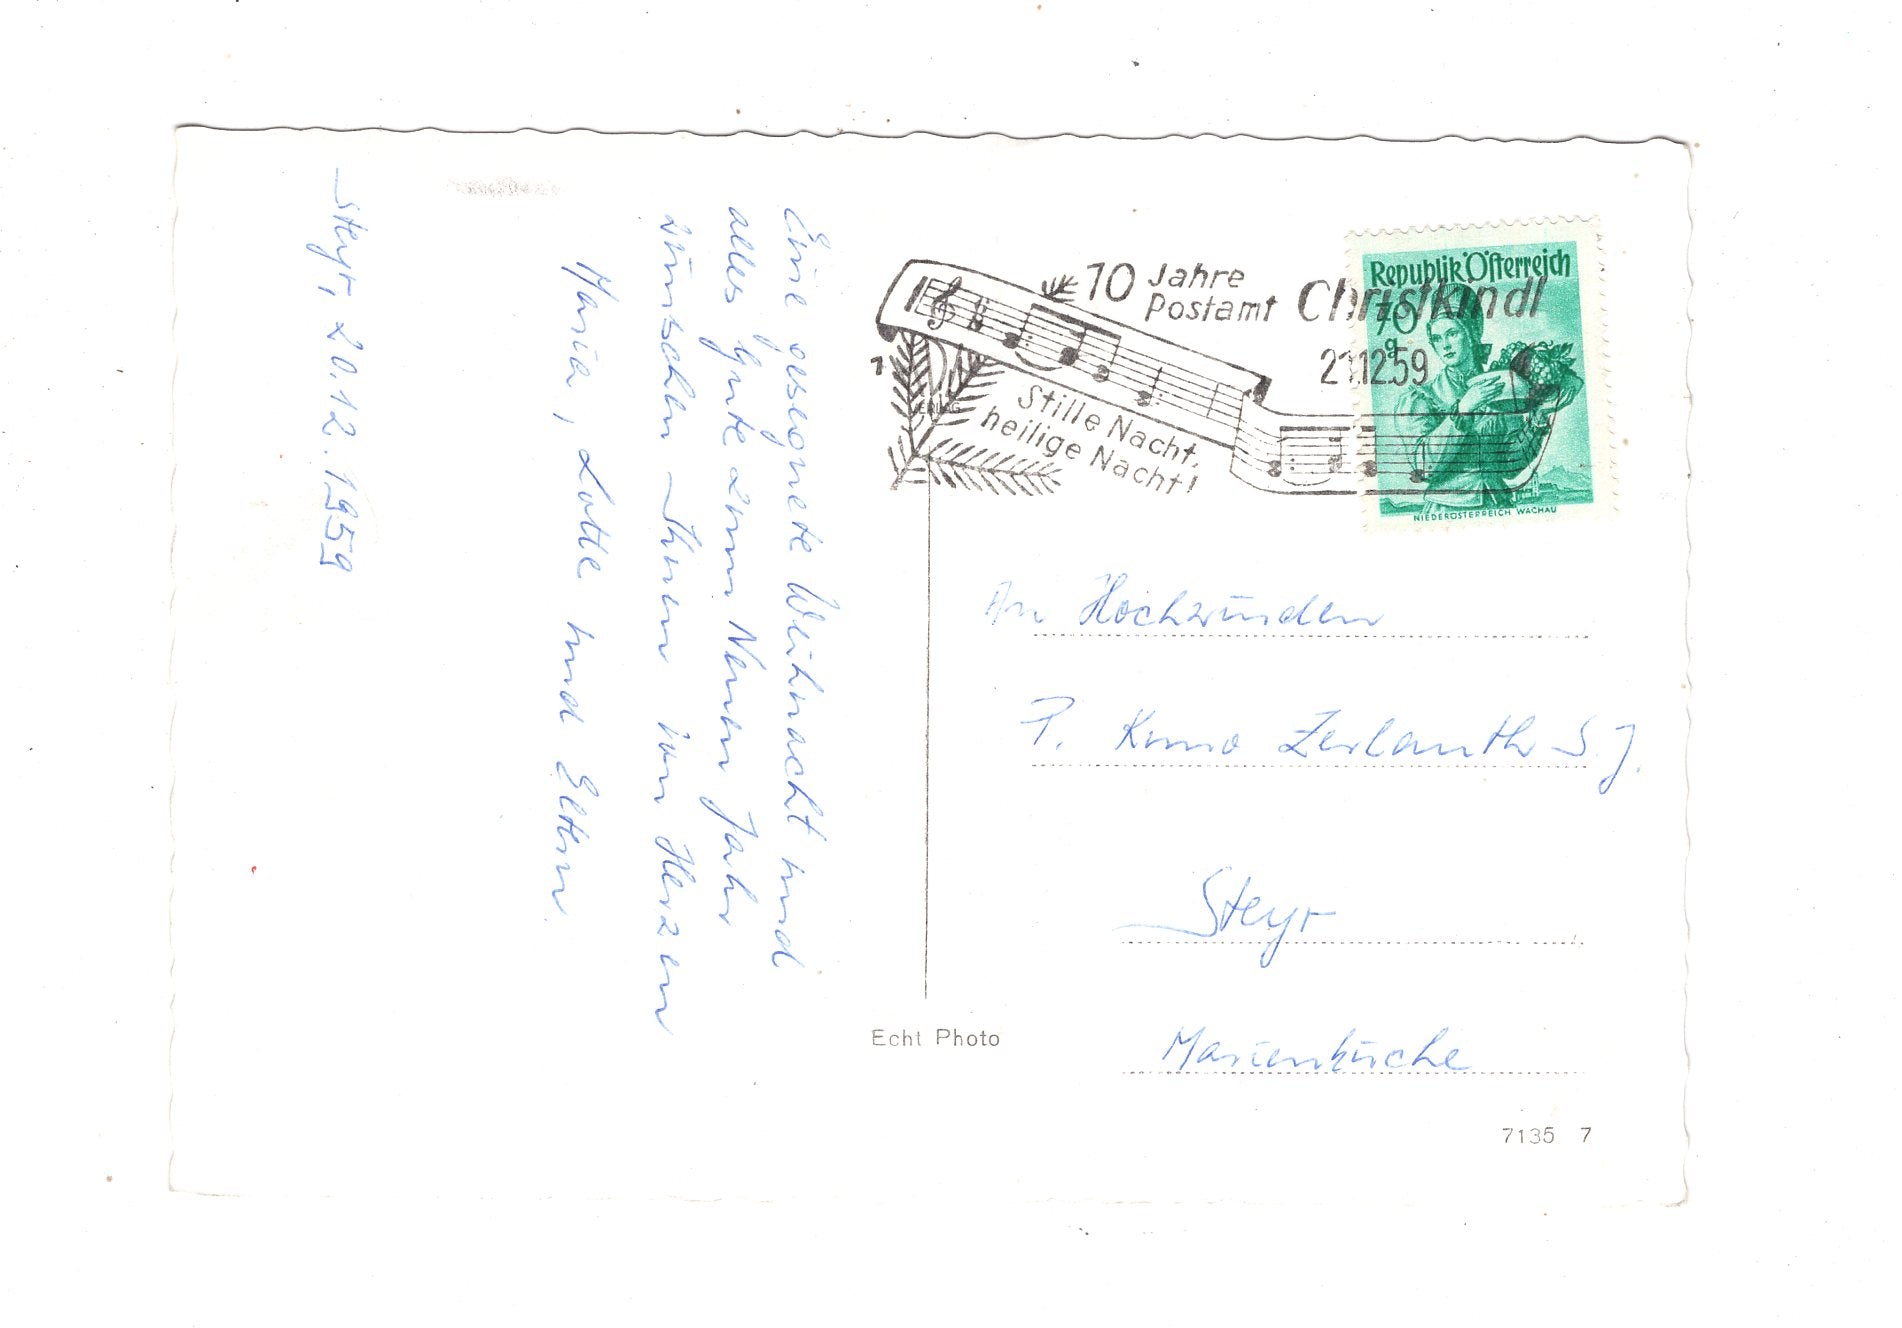 Steyr, 20.12.1959
Eine gesegnete Weihnacht und
alles Gute zum Neuen Jahr
wünschen Ihnen von Herzen
Maria, Lotte und Eltern.
10 Jahre
Postamt Christkindl
21.12.59
1
Stille Nacht,
heilige Nacht!
Republik Österreich
70
g
NIEDERÖSTERREICH WACHAU
An Hochwürden
P. Kuno Zerlauth S.J.
Steyr
Marienkirche
Echt Photo
7135 7